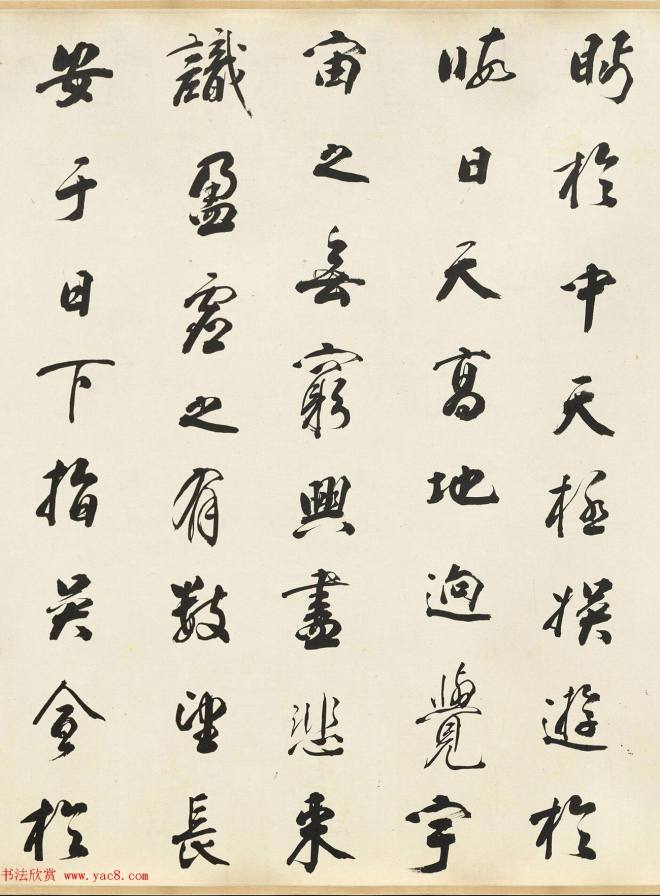 眄於中天極娛遊於
暇日天高地迥覺宇
宙之無窮興盡悲來
識盈虛之有數望長
安于日下指吳會於
书法欣赏 www.yac8.com